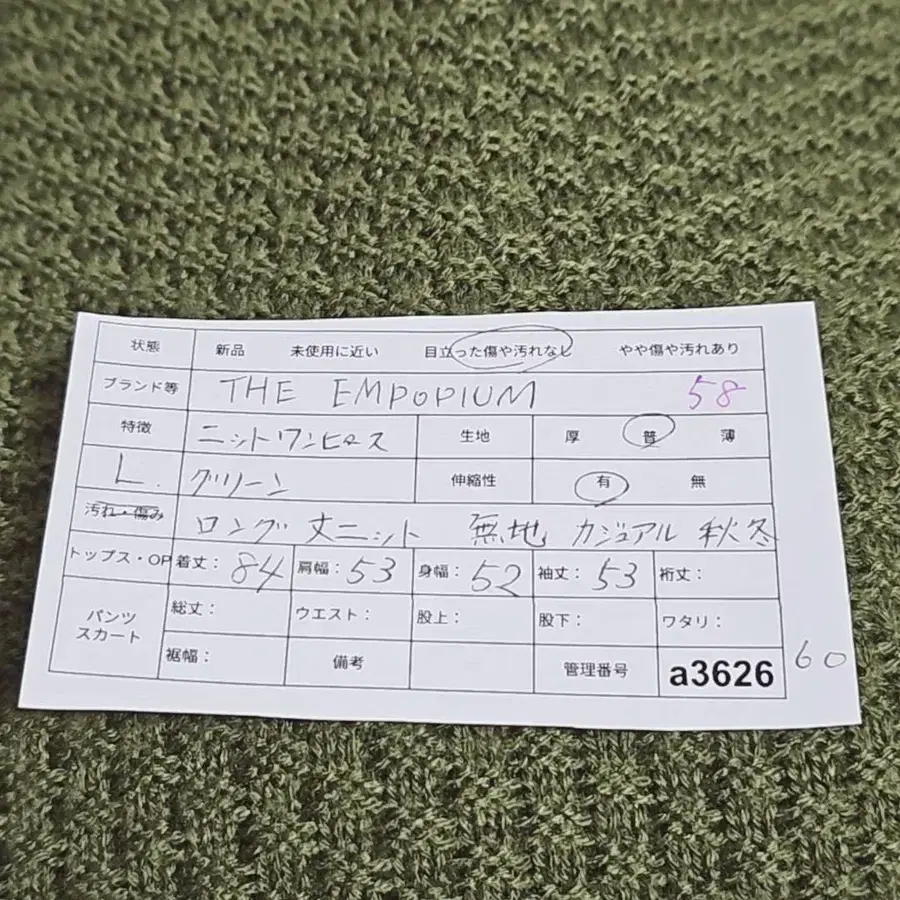 状態 新品 未使用に近い 目立った傷や汚れなし やや傷や汚れあり
ブランド等 THE EMPOPIUM 58
特徴 ニットワンピース 生地 厚 普 薄
L. グリーン 伸縮性 有 無
汚れ・傷み ロング丈ニット 無地 カジュアル 秋冬
トップス・OP 着丈: 84 肩幅: 53 身幅: 52 袖丈: 53 裄丈:
パンツ スカート 総丈: ウエスト: 股上: 股下: ワタリ:
裾幅: 備考 管理番号 a3626 60